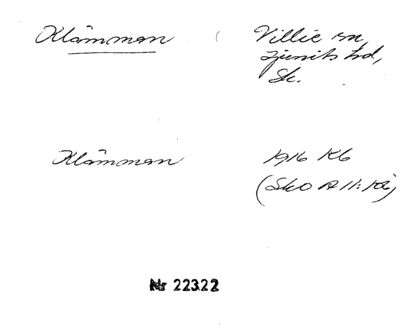 Klämman Villie sn,
Ljunits hd,
Sk.
Klämman 1916 K6
(SkO A 11: Kä)
Nr 22322